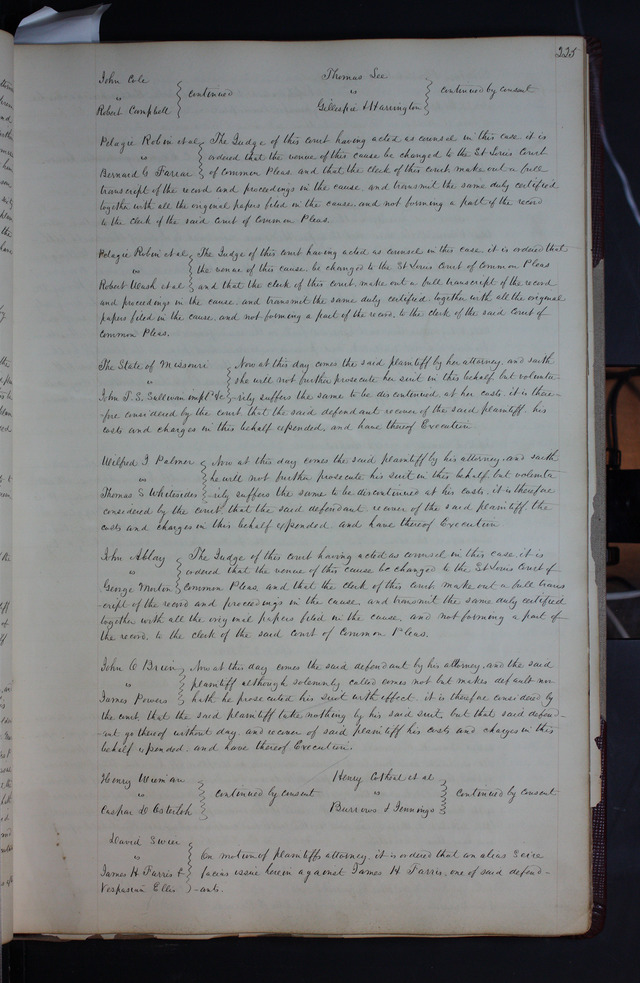 225
John Cole
vs } continued
Robert Campbell
Thomas Lee
vs } continued by consent
Gillespie & Harrington
Pelagie Robin et al } The Judge of this court having acted as counsel in this case it is
vs } ordered that the venue of this cause be changed to the St Louis Court
Bernard G Farrar } of Common Pleas and that the clerk of this court make out a full
transcript of the record and proceedings in the cause and transmit the same duly certified
together with all the original papers filed in the cause and not forming a part of the record
to the clerk of the said Court of Common Pleas.
Pelagie Robin et al } The Judge of this court having acted as counsel in this case it is ordered that
vs } the venue of this cause be changed to the St Louis Court of Common Pleas
Robert Wash et al } and that the clerk of this court make out a full transcript of the record
and proceedings in the cause and transmit the same duly certified together with all the original
papers filed in the cause and not forming a part of the record, to the clerk of the said Court of
Common Pleas.
The State of Missouri } Now at this day comes the said plaintiff by her attorney, and saith
vs } she will not further prosecute her suit in this behalf but volunta-
John T. S. Sullivan impl &c } -rily suffers the same to be discontinued, at her costs, it is there-
-fore considered by the court that the said defendant recover of the said plaintiff, his
costs and charges in this behalf expended, and have thereof Execution
Wilfred J Palmer } Now at this day comes the said plaintiff by his attorney and saith
vs } he will not further prosecute his suit in this behalf but volunta
Thomas S Whitesides } -rily suffers the same to be discontinued at his costs, it is therefore
considered by the court, that the said defendant, recover of the said plaintiff the
costs and charges in this behalf expended and have thereof Execution
John Ablay } The Judge of this court having acted as counsel in this case, it is
vs } ordered that the venue of this cause be changed to the St Louis Court of
George Morton } Common Pleas, and that the clerk of this court make out a full trans
cript of the record and proceedings in the cause, and transmit the same duly certified
together with all the original papers filed in the cause, and not forming a part of
the record, to the clerk of the said Court of Common Pleas.
John O Brien } Now at this day comes the said defendant by his attorney, and the said
vs } plaintiff although solemnly called comes not but makes default nor
James Powers } hath he prosecuted his suit with effect. it is therefore considered by
the court that the said plaintiff take nothing by his said suit, but that said defend-
-ant go thereof without day, and recover of said plaintiff his costs and charges in this
behalf expended, and have thereof Execution.
Henry
vs } continued by consent
Caspar D Osterloh
Henry et al
vs } continued by consent
Burrows & Jennings
David
vs } On motion of plaintiffs attorney, it is ordered that an alias Scire
James H Farris & } facias issue herein against James H. Farris, one of said defend-
Vespasian Ellis } -ants.